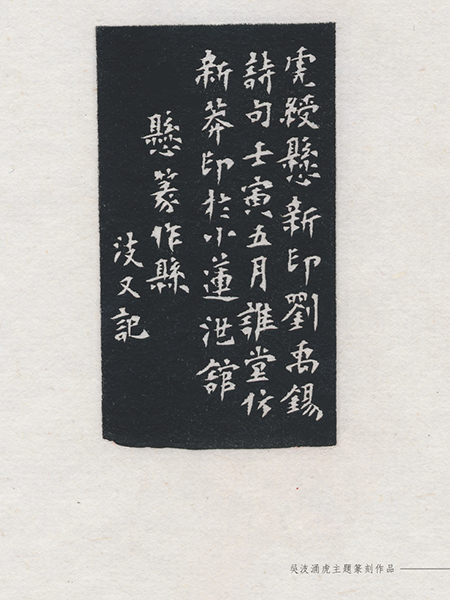 虎綬懸新印劉禹錫
詩句壬寅五月誰堂仿
新莽印於小蓮池館
懸篆作縣
波又記
吳波涌虎主題篆刻作品